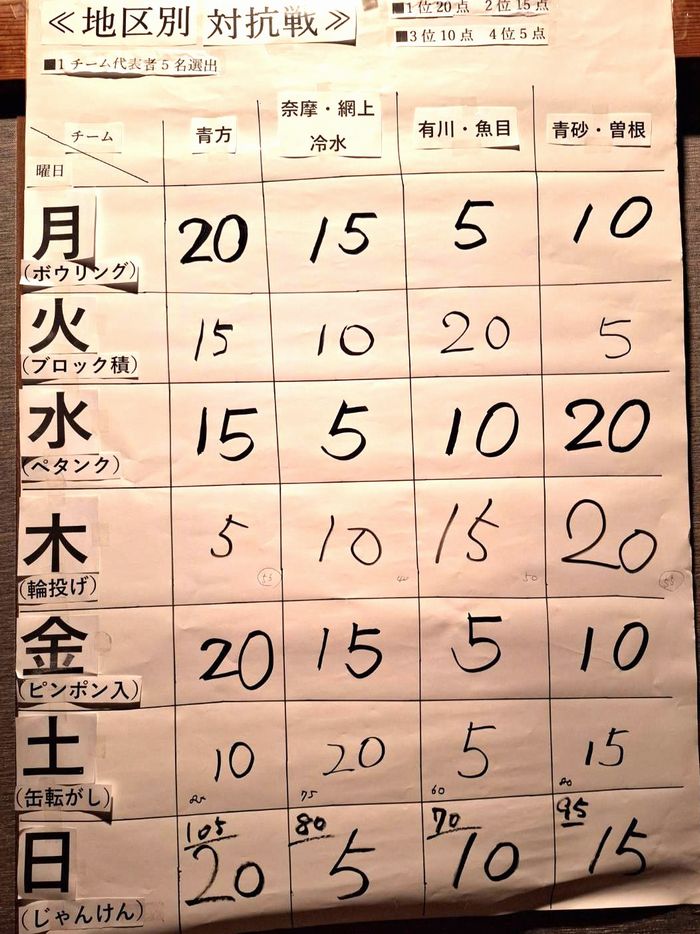 ≪地区別 対抗戦≫
■1位20点 2位15点
■3位10点 4位5点
■1チーム代表者5名選出
チーム
曜日
青方
奈摩・網上
冷水
有川・魚目
青砂・曽根
月
(ボウリング)
20 15 5 10
火
(ブロック積)
15 10 20 5
水
(ペタンク)
15 5 10 20
木
(輪投げ)
5 10 15 20
40 50
金
(ピンポン入)
20 15 5 10
土
(缶転がし)
10 20 5 15
85 75 60 80
日
(じゃんけん)
105 80 70 95
20 5 10 15